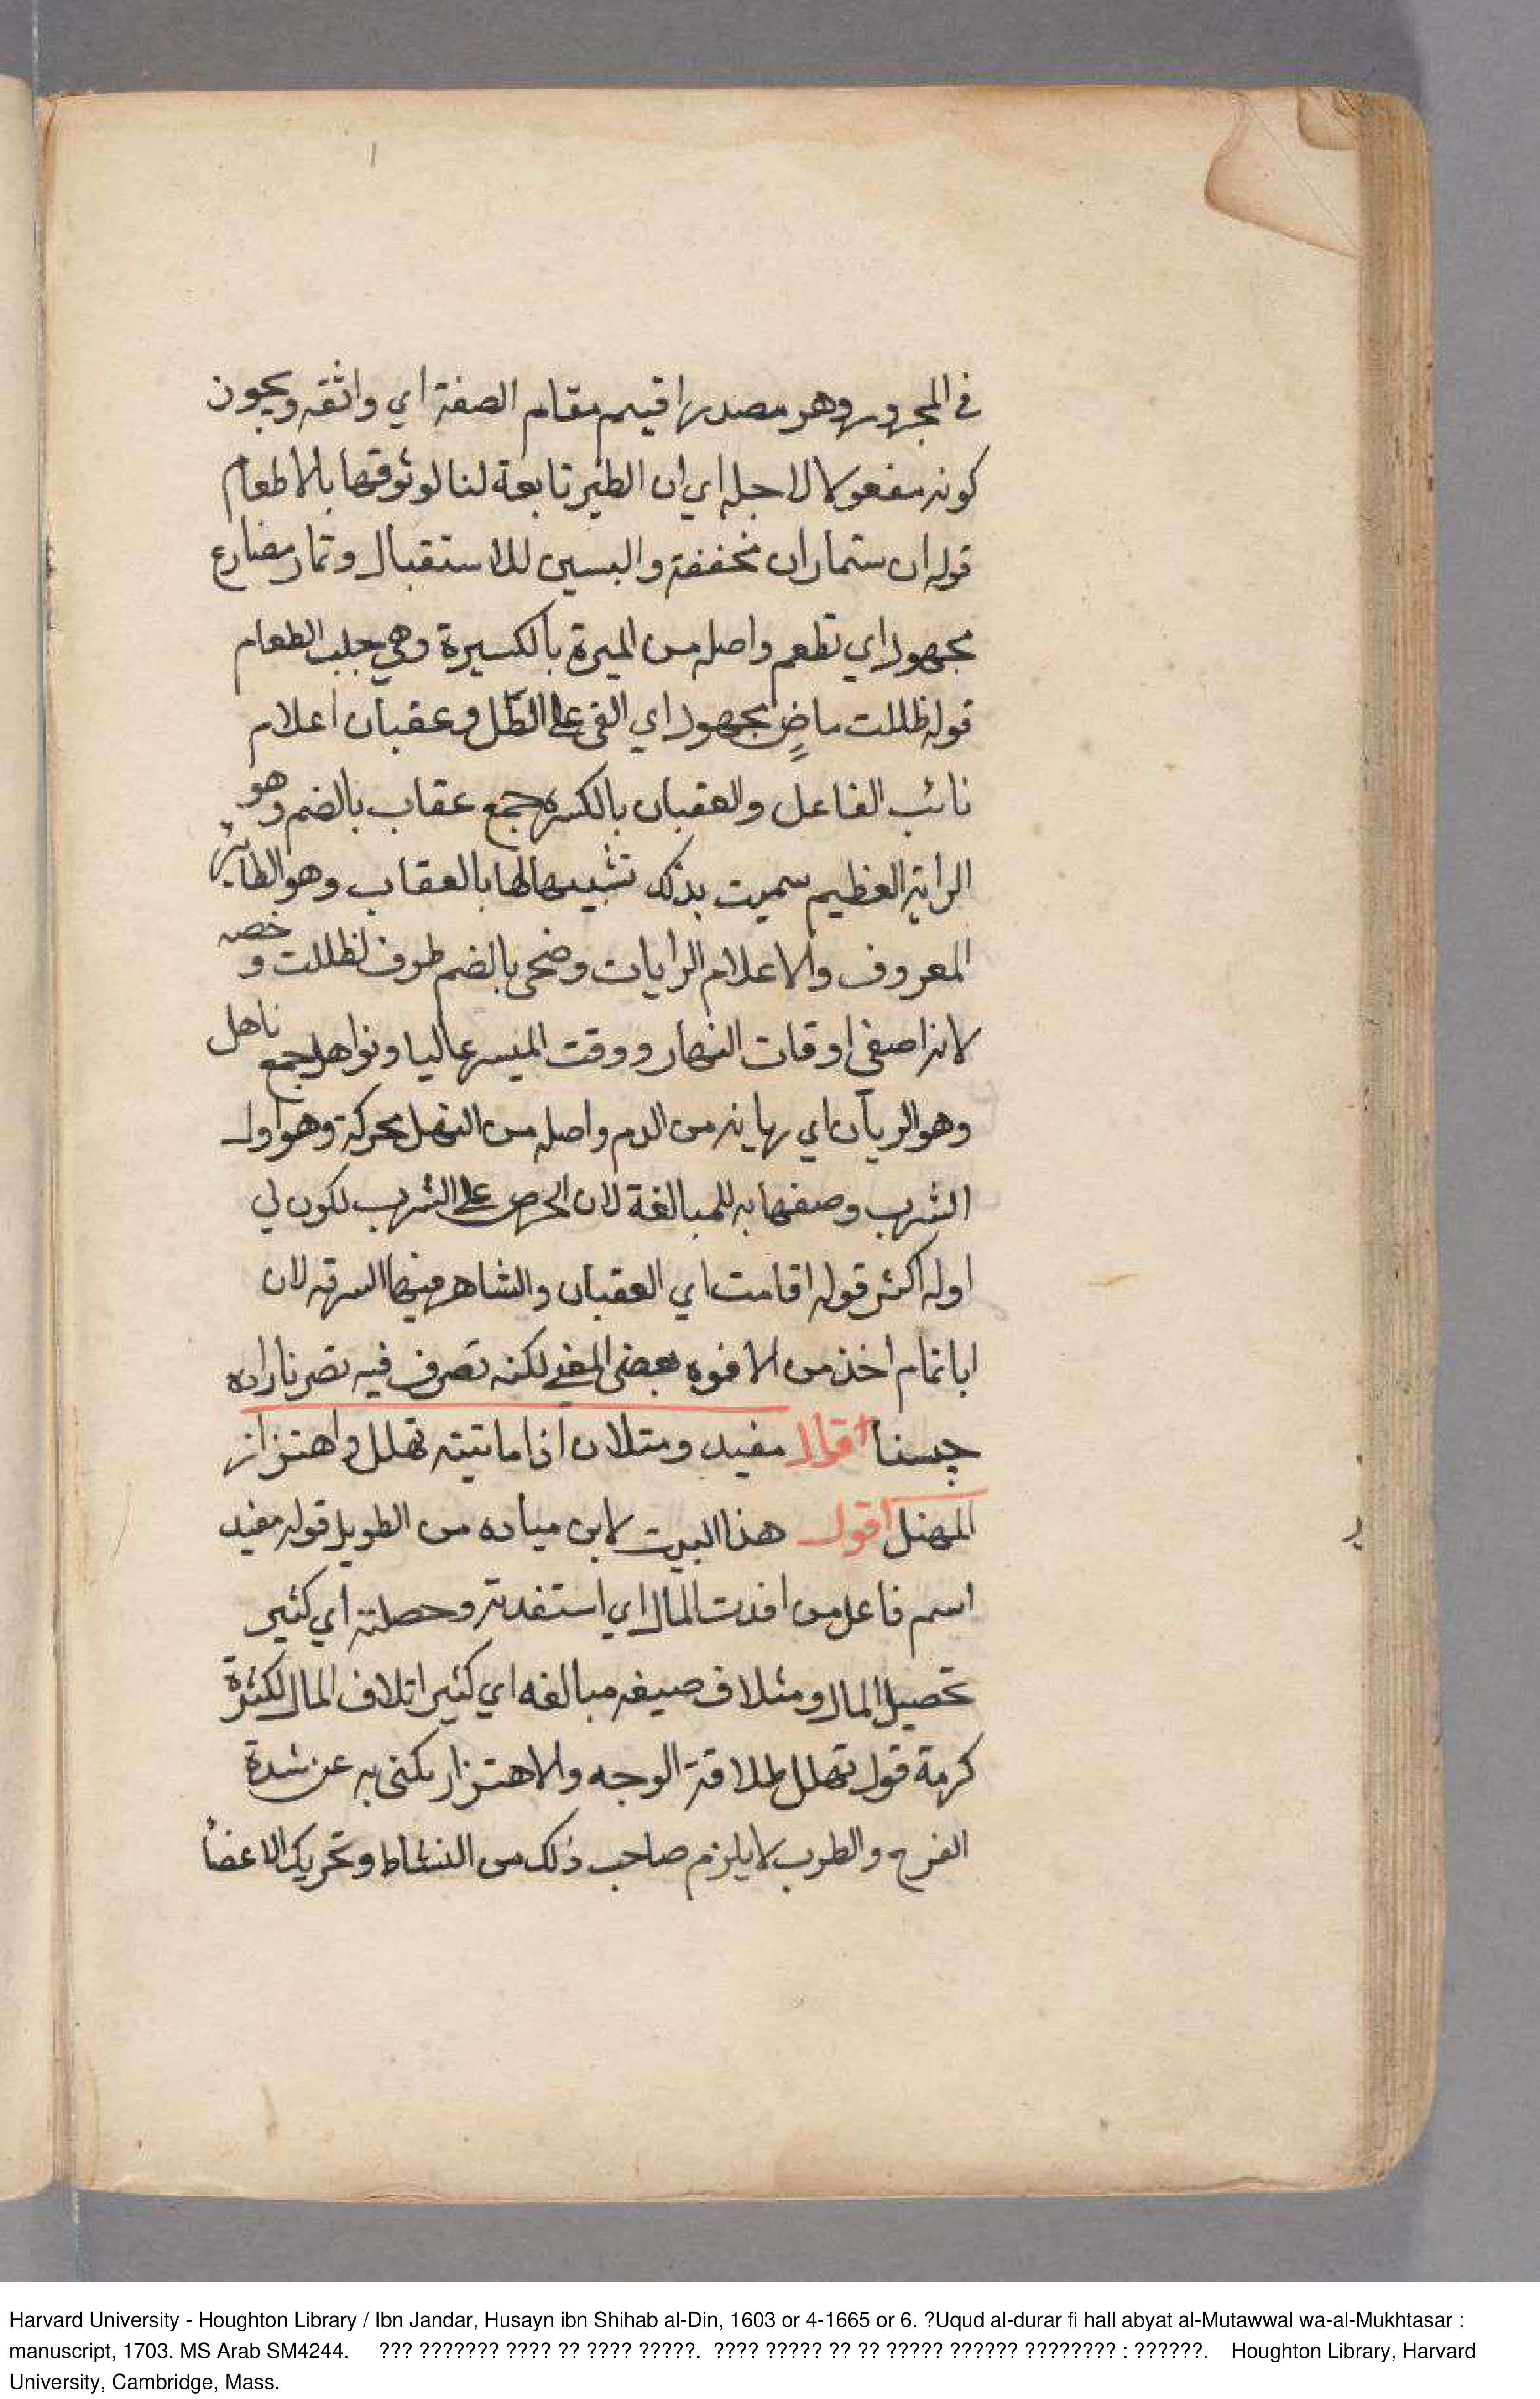 في المجرور وهو مصدر اقيم مقام الصفة اي واثقه ويجوز
كونه مفعولا لاجله اي ان الطير تابعة لنا لوثوقها بالاطعام
قوله ان ستمار ان مخففة والسين للاستقبال وتمار مضارع
مجهول اي تطعم واصله من الميرة بالكسيرة وهي جلب الطعام
قوله ظللت ماضٍ مجهول اي القى على الظل وعقبان اعلام
نائب الفاعل والعقبان بالكسره جمع عقاب بالضم وهو
الراية العظيم سميت بذلك تشبيها لها بالعقاب وهو الطائر
المعروف والاعلام الرايات وضحى بالضم ظرف لظللت و خصه
لانه اصفى اوقات النهار ووقت الميسر عاليا ونواهل جمع ناهل
وهو الريان اي ريانه من الدم واصله من النهل محركة وهو اول
الشرب وصفها به للمبالغة لان الحرص على الشرب لكون لي
اوله اكثر قوله اقامت اي العقبان والشاهر فيها السرقه لان
ابا تمام اخذ من الافوه بعض المعنى لكنه تصرف فيه تصرفا زاده
حسنا قال مفيد ومتلان اذا ماتيته تهلل واهتزاز
المهند اقول هذا البيت لابن مياده من الطويل قوله مفيد
اسم فاعل من افدت المال اي استفدته وحصلته اي كثير
تحصيل المال ومثلاف صيغه مبالغه اي كثير اتلاف المال لكثرة
كرمة قول تهلل طلاقة الوجه والاهتزار يكنى به عن شدة
الفرح والطرب لايلزم صاحب ذلك من النشاط وتحريك الاعضا
Harvard University - Houghton Library / Ibn Jandar, Husayn ibn Shihab al-Din, 1603 or 4-1665 or 6. ?Uqud al-durar fi hall abyat al-Mutawwal wa-al-Mukhtasar :
manuscript, 1703. MS Arab SM4244. ??? ??????? ???? ?? ???? ?????. ???? ????? ?? ?? ????? ?????? ???????? : ??????. Houghton Library, Harvard
University, Cambridge, Mass.